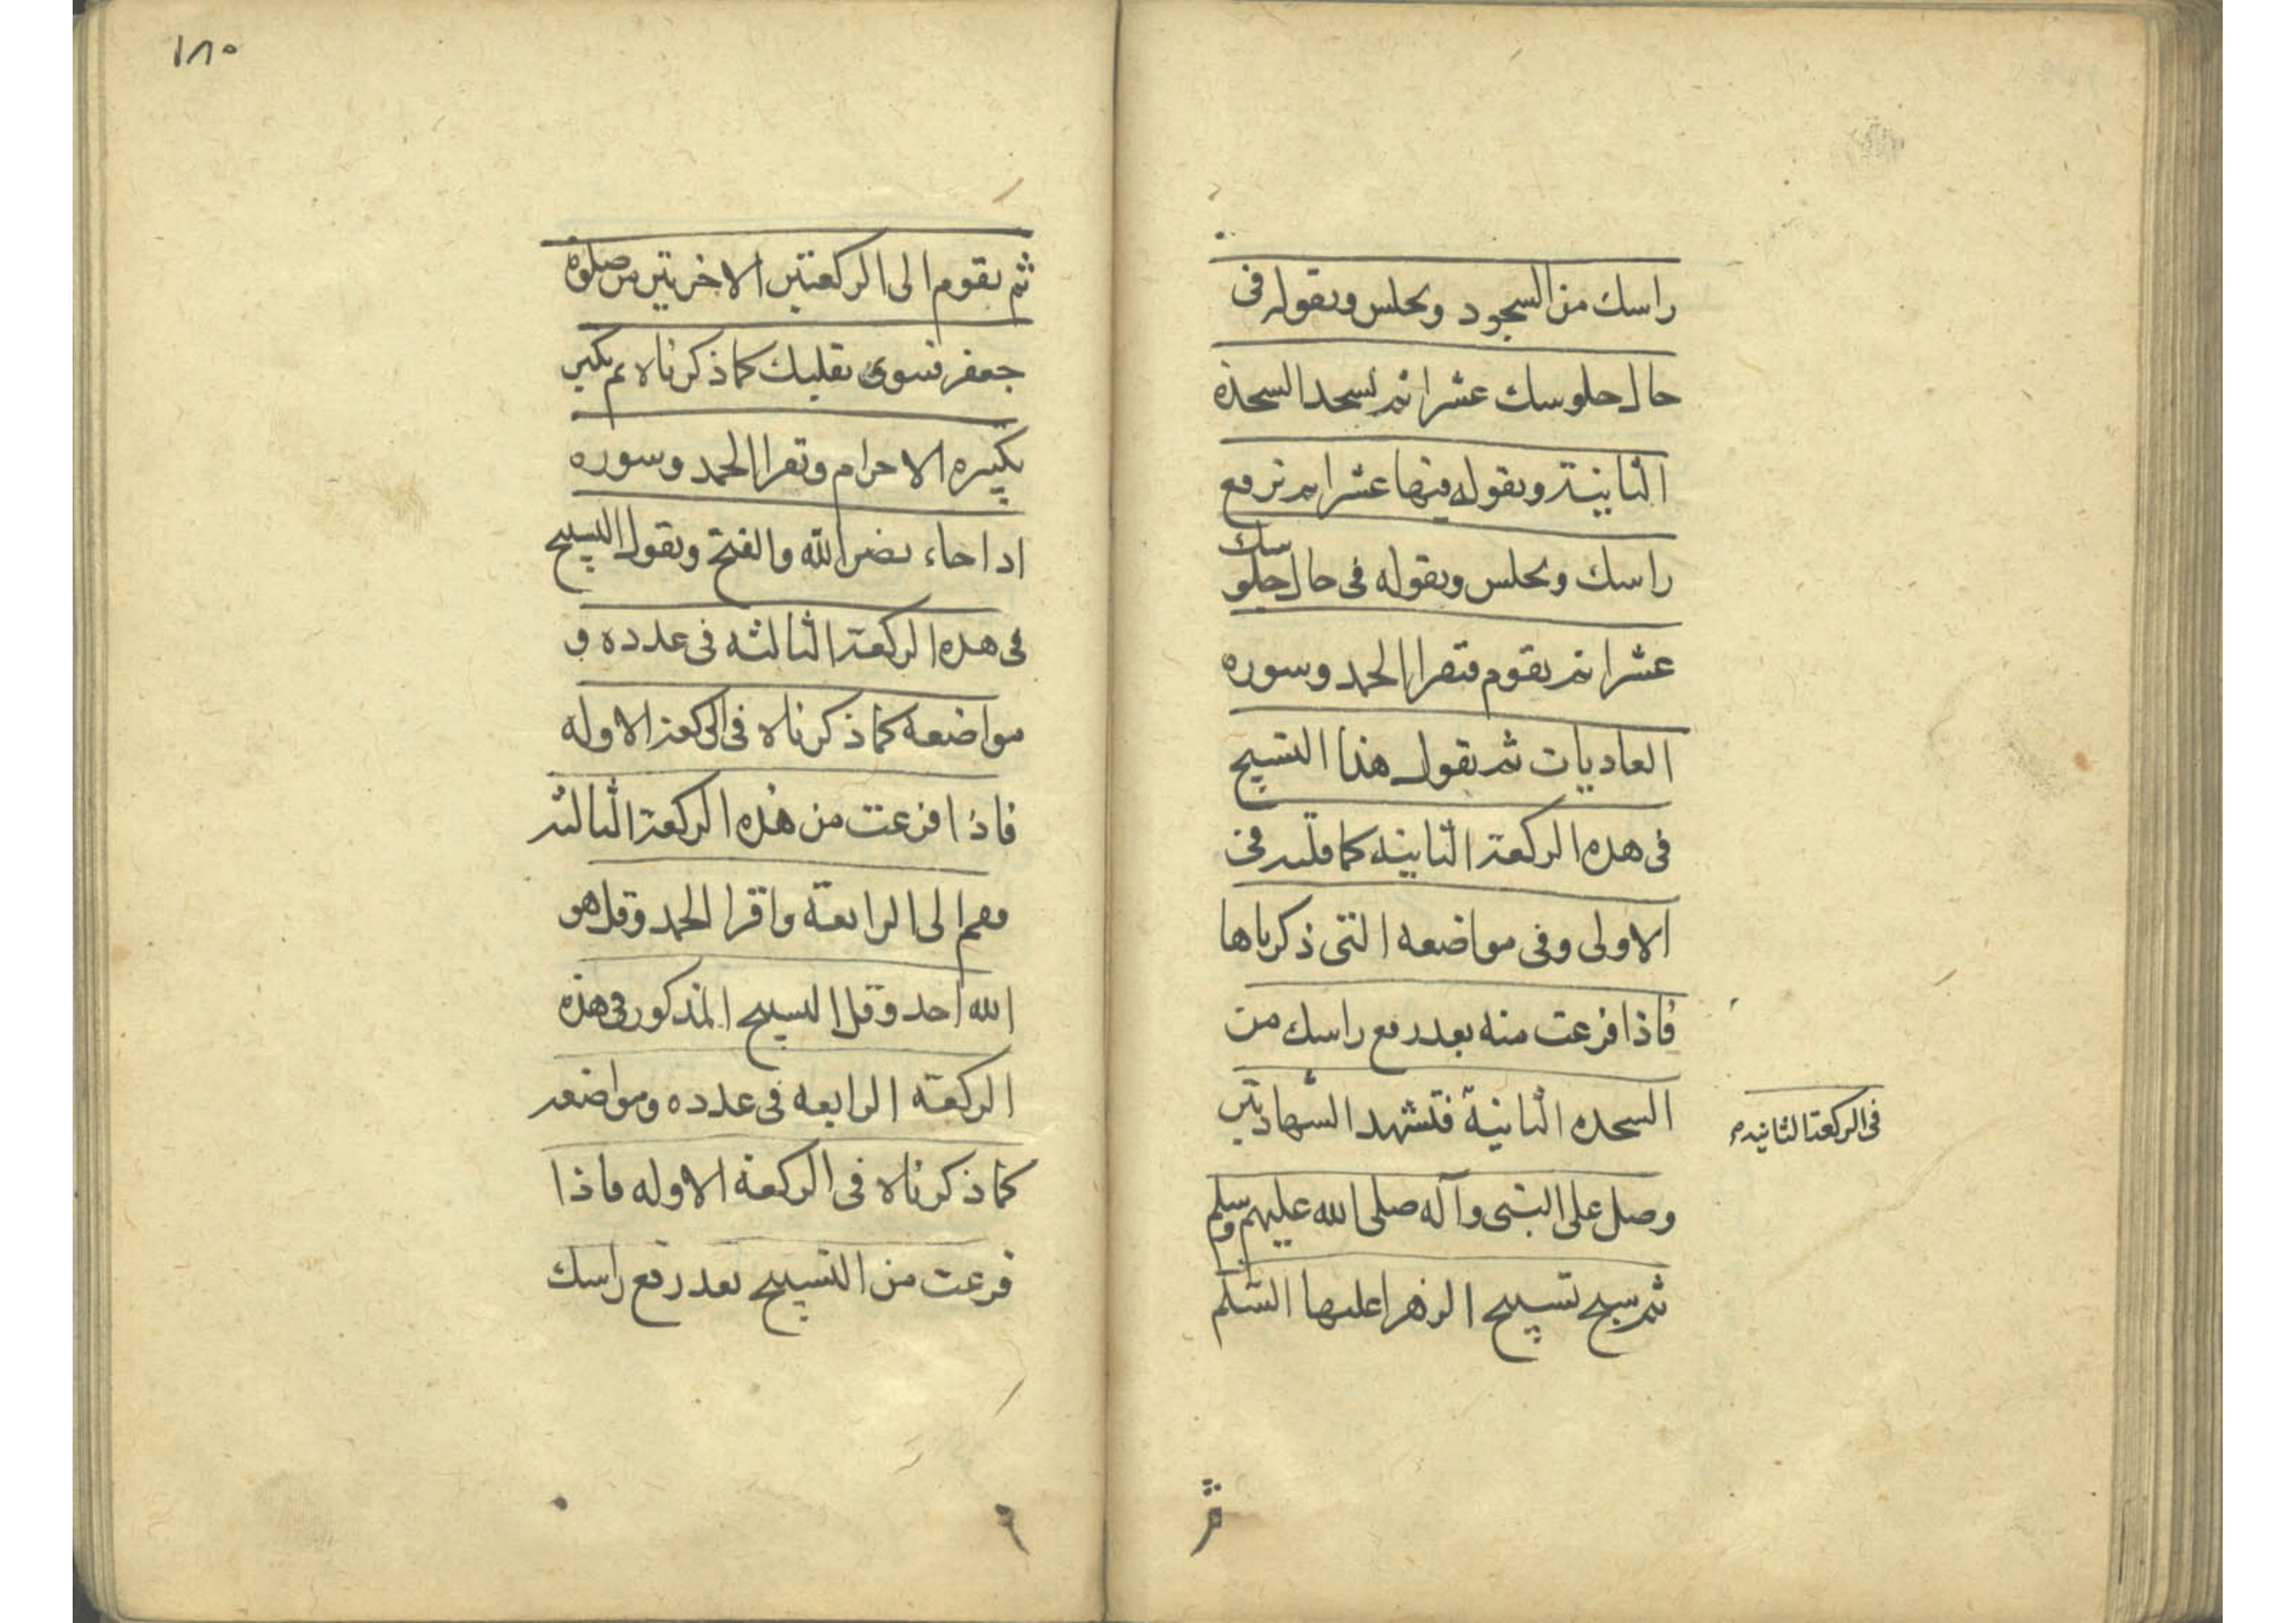 راسك من السجود وتجلس وتقوله فى
حال جلوسك عشرا ثم تسجد السجدة
الثانية وتقوله فيها عشرا ثم ترفع
راسك وتجلس وتقوله فى حال جلوسك
عشرا ثم تقوم فتقرا الحمد وسوره
العاديات ثم تقول هذا التسبيح
فى هذه الركعة الثانيه كما قلته فى
الاولى وفى مواضعه التى ذكرناها
فاذا فرغت منه بعد رفع راسك من
السجده الثانية فتشهد الشهادتين
فى الركعة الثانيه
وصل على النبى وآله صلى الله عليهم وسلم
ثم سبح تسبيح الزهرا عليها السلم
ثم
١٨٠
ثم تقوم الى الركعتين الاخريين من صلوة
جعفر فتنوى بقلبك كما ذكرناه ثم تكبر
تكبيره الاحرام وتقرا الحمد وسوره
اذا جاء نصر الله والفتح وتقول التسبيح
فى هذه الركعة الثالثه فى عدده و
مواضعه كما ذكرناه فى الركعة الاوله
فاذا فرغت من هذه الركعة الثالثه
فقم الى الرابعة واقرا الحمد وقل هو
الله احد وقل التسبيح المذكور فى هذه
الركعة الرابعه فى عدده ومواضعه
كما ذكرناه فى الركعة الاوله فاذا
فرغت من التسبيح بعد رفع راسك